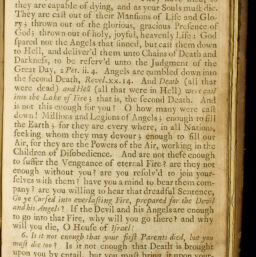 they are capable of dying, and as your Souls must die.
They are cast out of their Mansions of Life and Glo-
ry; thrown out of the glorious, gracious Presence of
God; thrown out of holy, joyful, heavenly Life: God
spared not the Angels that sinned, but cast them down
to Hell, and deliver'd them unto Chains of Death and
Darkness, to be reserv'd unto the Judgment of the
Great Day, 2 Pet. ii. 4. Angels are tumbled down into
the second Death, Revel. xx. 14. And Death (all that
were dead) and Hell (all that were in Hell) were cast
into the Lake of Fire; that is, the second Death. And
is not this enough for you? O how many were cast
down! Millions and Legions of Angels; enough to fill
the Earth; for they are every where, in all Nations,
seeking whom they may devour; enough to fill our
Air, for they are the Powers of the Air, working in the
Children of Disobedience. And are not these enough
to suffer the Vengeance of eternal Fire? are they not
enough without you? are you resolv'd to join your-
selves with them? have you a mind to bear them com-
pany? are you willing to hear that dreadful Sentence,
Go ye Cursed into everlasting Fire, prepared for the Devil
and his Angels? If the Devil and his Angels are enough
to go into that Fire, why will you go there? and why
will you die, O House of Israel?
6. Is it not enough that your first Parents died, but you
must die too? Is it not enough that Death is brought
upon you by entail, but you must bring it upon your-